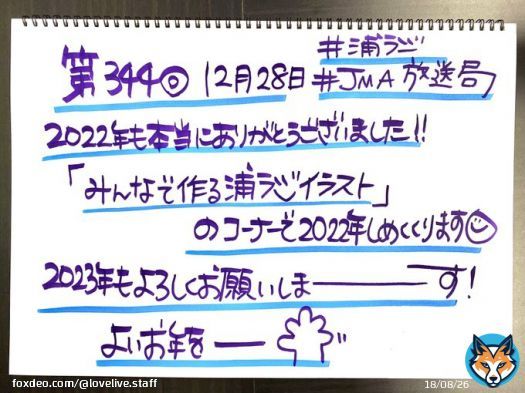 #浦ラジ
第344回 12月28日 #JMA放送局
2022年も本当にありがとうございました!!
「みんなで作る浦ラジイラスト」
のコーナーで2022年しめくくります
2023年もよろしくお願いしま―――す!
よいお年を―
foxdeo.com/@lovelive.staff
18/08/26